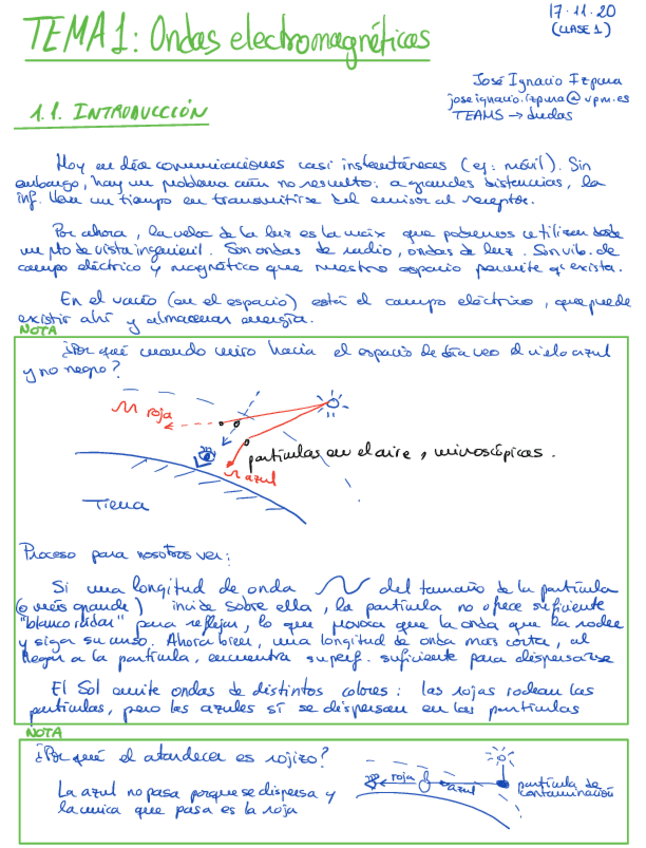 17·11·20
(CLASE 1)
TEMA 1: Ondas electromagnéticas
José Ignacio Izpura
joseignacio.izpura@upm.es
TEAMS → dudas
1.1. INTRODUCCIÓN
Hoy en día comunicaciones casi instantáneas (ej: móvil). Sin
embargo, hay un problema aún no resuelto: a grandes distancias, la
inf. lleva un tiempo en transmitirse del emisor al receptor.
Por ahora, la veloc de la luz es la máx que podemos utilizar desde
un pto de vista ingenieril. Son ondas de radio, ondas de luz. Son vib. de
campo eléctrico y magnético que nuestro espacio permite q exista.
En el vacío (en el espacio) está el campo eléctrico, que puede
existir ahí y almacenar energía.
NOTA
¿Por qué cuando miro hacia el espacio de día veo el cielo azul
y no negro?
roja
partículas en el aire, microscópicas.
azul
Tierra
Proceso para nosotros ver:
Si una longitud de onda del tamaño de la partícula
(o más grande) incide sobre ella, la partícula no ofrece suficiente
"blanco radar" para reflejar, lo que provoca que la onda que la rodee
y siga su curso. Ahora bien, una longitud de onda más corta, al
llegar a la partícula, encuentra superf. suficiente para dispersarse
El Sol emite ondas de distintos colores: las rojas rodean las
partículas, pero las azules sí se dispersan en las partículas
NOTA
¿Por qué el atardecer es rojizo?
roja
azul
partícula de
contaminación
La azul no pasa porque se dispersa y
la única que pasa es la roja